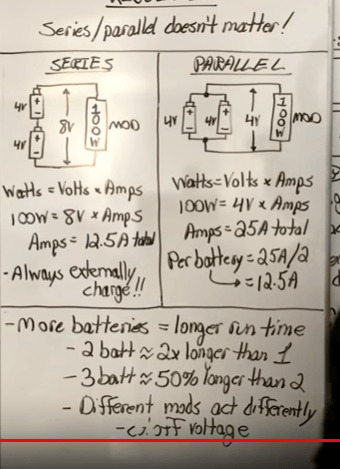 Series/parallel doesn't matter!
SERIES
4V
4V
8V
100W
MOD
Watts = Volts × Amps
100W = 8V × Amps
Amps = 12.5A total
- Always externally
charge!!
PARALLEL
4V
4V
4V
100W
MOD
Watts = Volts × Amps
100W = 4V × Amps
Amps = 25A total
Per battery = 25A/2
= 12.5A
- More batteries = longer run time
- 2 batt ≈ 2x longer than 1
- 3 batt ≈ 50% longer than 2
- Different mods act differently
voltage